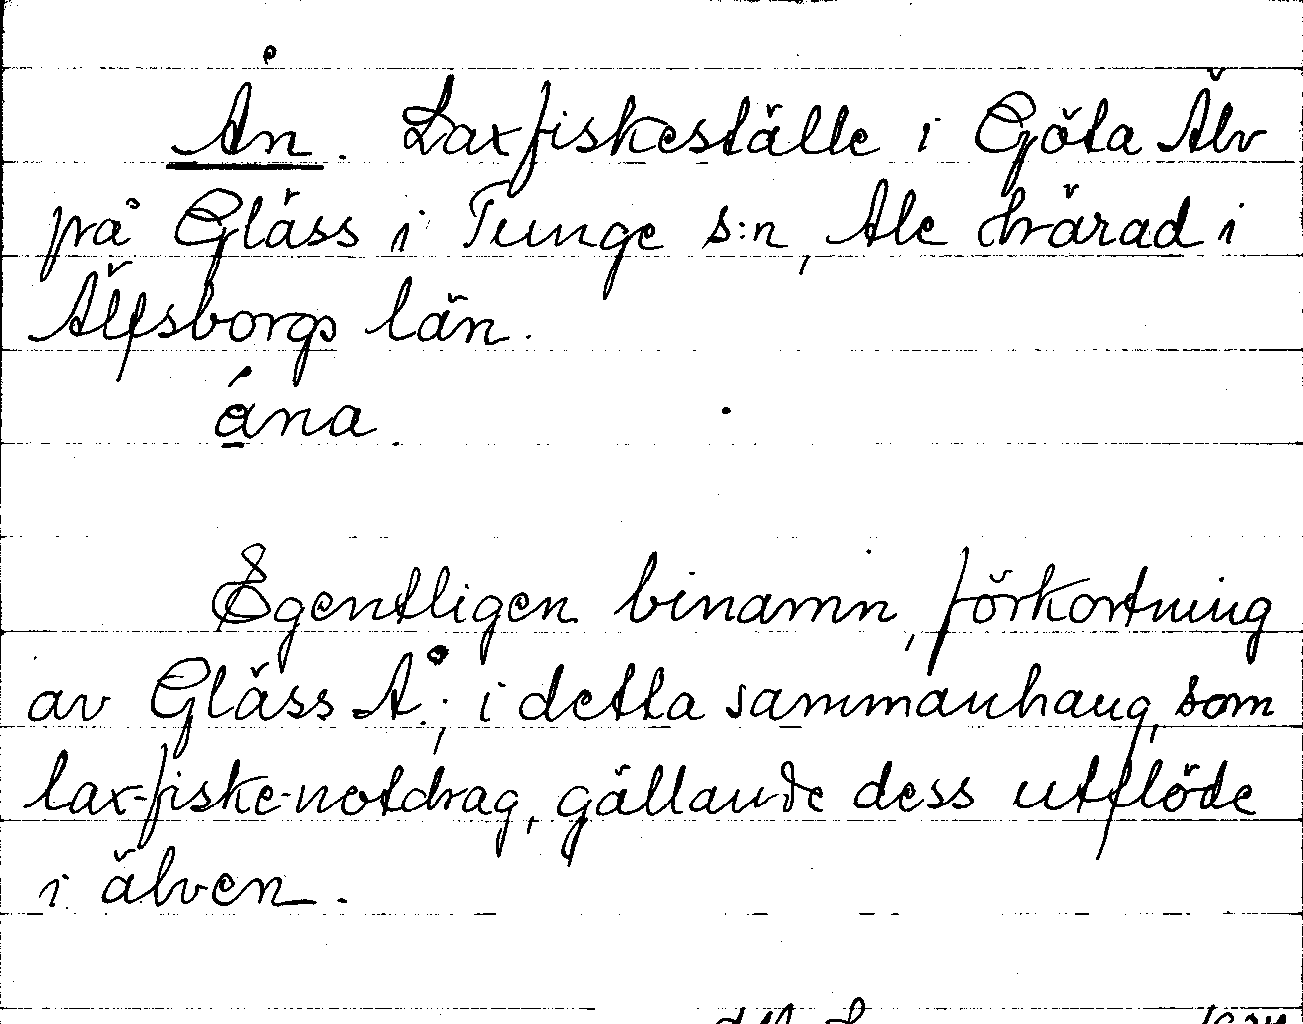 Ån. Laxfiskeställe i Göta Älv
på Gläss i Tunge s:n, Ale härad i
Älfsborgs län.
ána.
Egentligen binamn, förkortning
av Gläss Å.; i detta sammanhang, som
lax-fiske-notdrag, gällande dess utflöde
i älven.